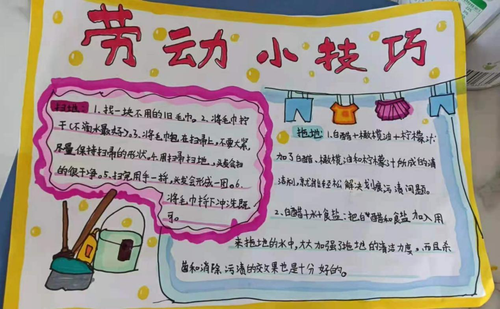 劳动小技巧
扫地：1.找一块不用的旧毛巾。2、将毛巾拧
干(不滴水最好)。3、将毛巾包在扫帚上，不要太紧，
尽量保持扫帚的形状。4.用扫帚扫地，头发会扫
的很干净。5.扫完用手一捋，头发会形成一团。6、
将毛巾拆下冲洗既
可。
拖地：1.白醋+橄榄油+柠檬汁
加了白醋、橄榄油和柠檬汁所成的清
洁剂，就能轻松解决划痕污渍问题。
2、白醋+水+食盐：把白醋和食盐加入用
来拖地的水中，大大加强了拖地的清洁力度，而且杀
菌和消除污渍的效果也是十分好的。